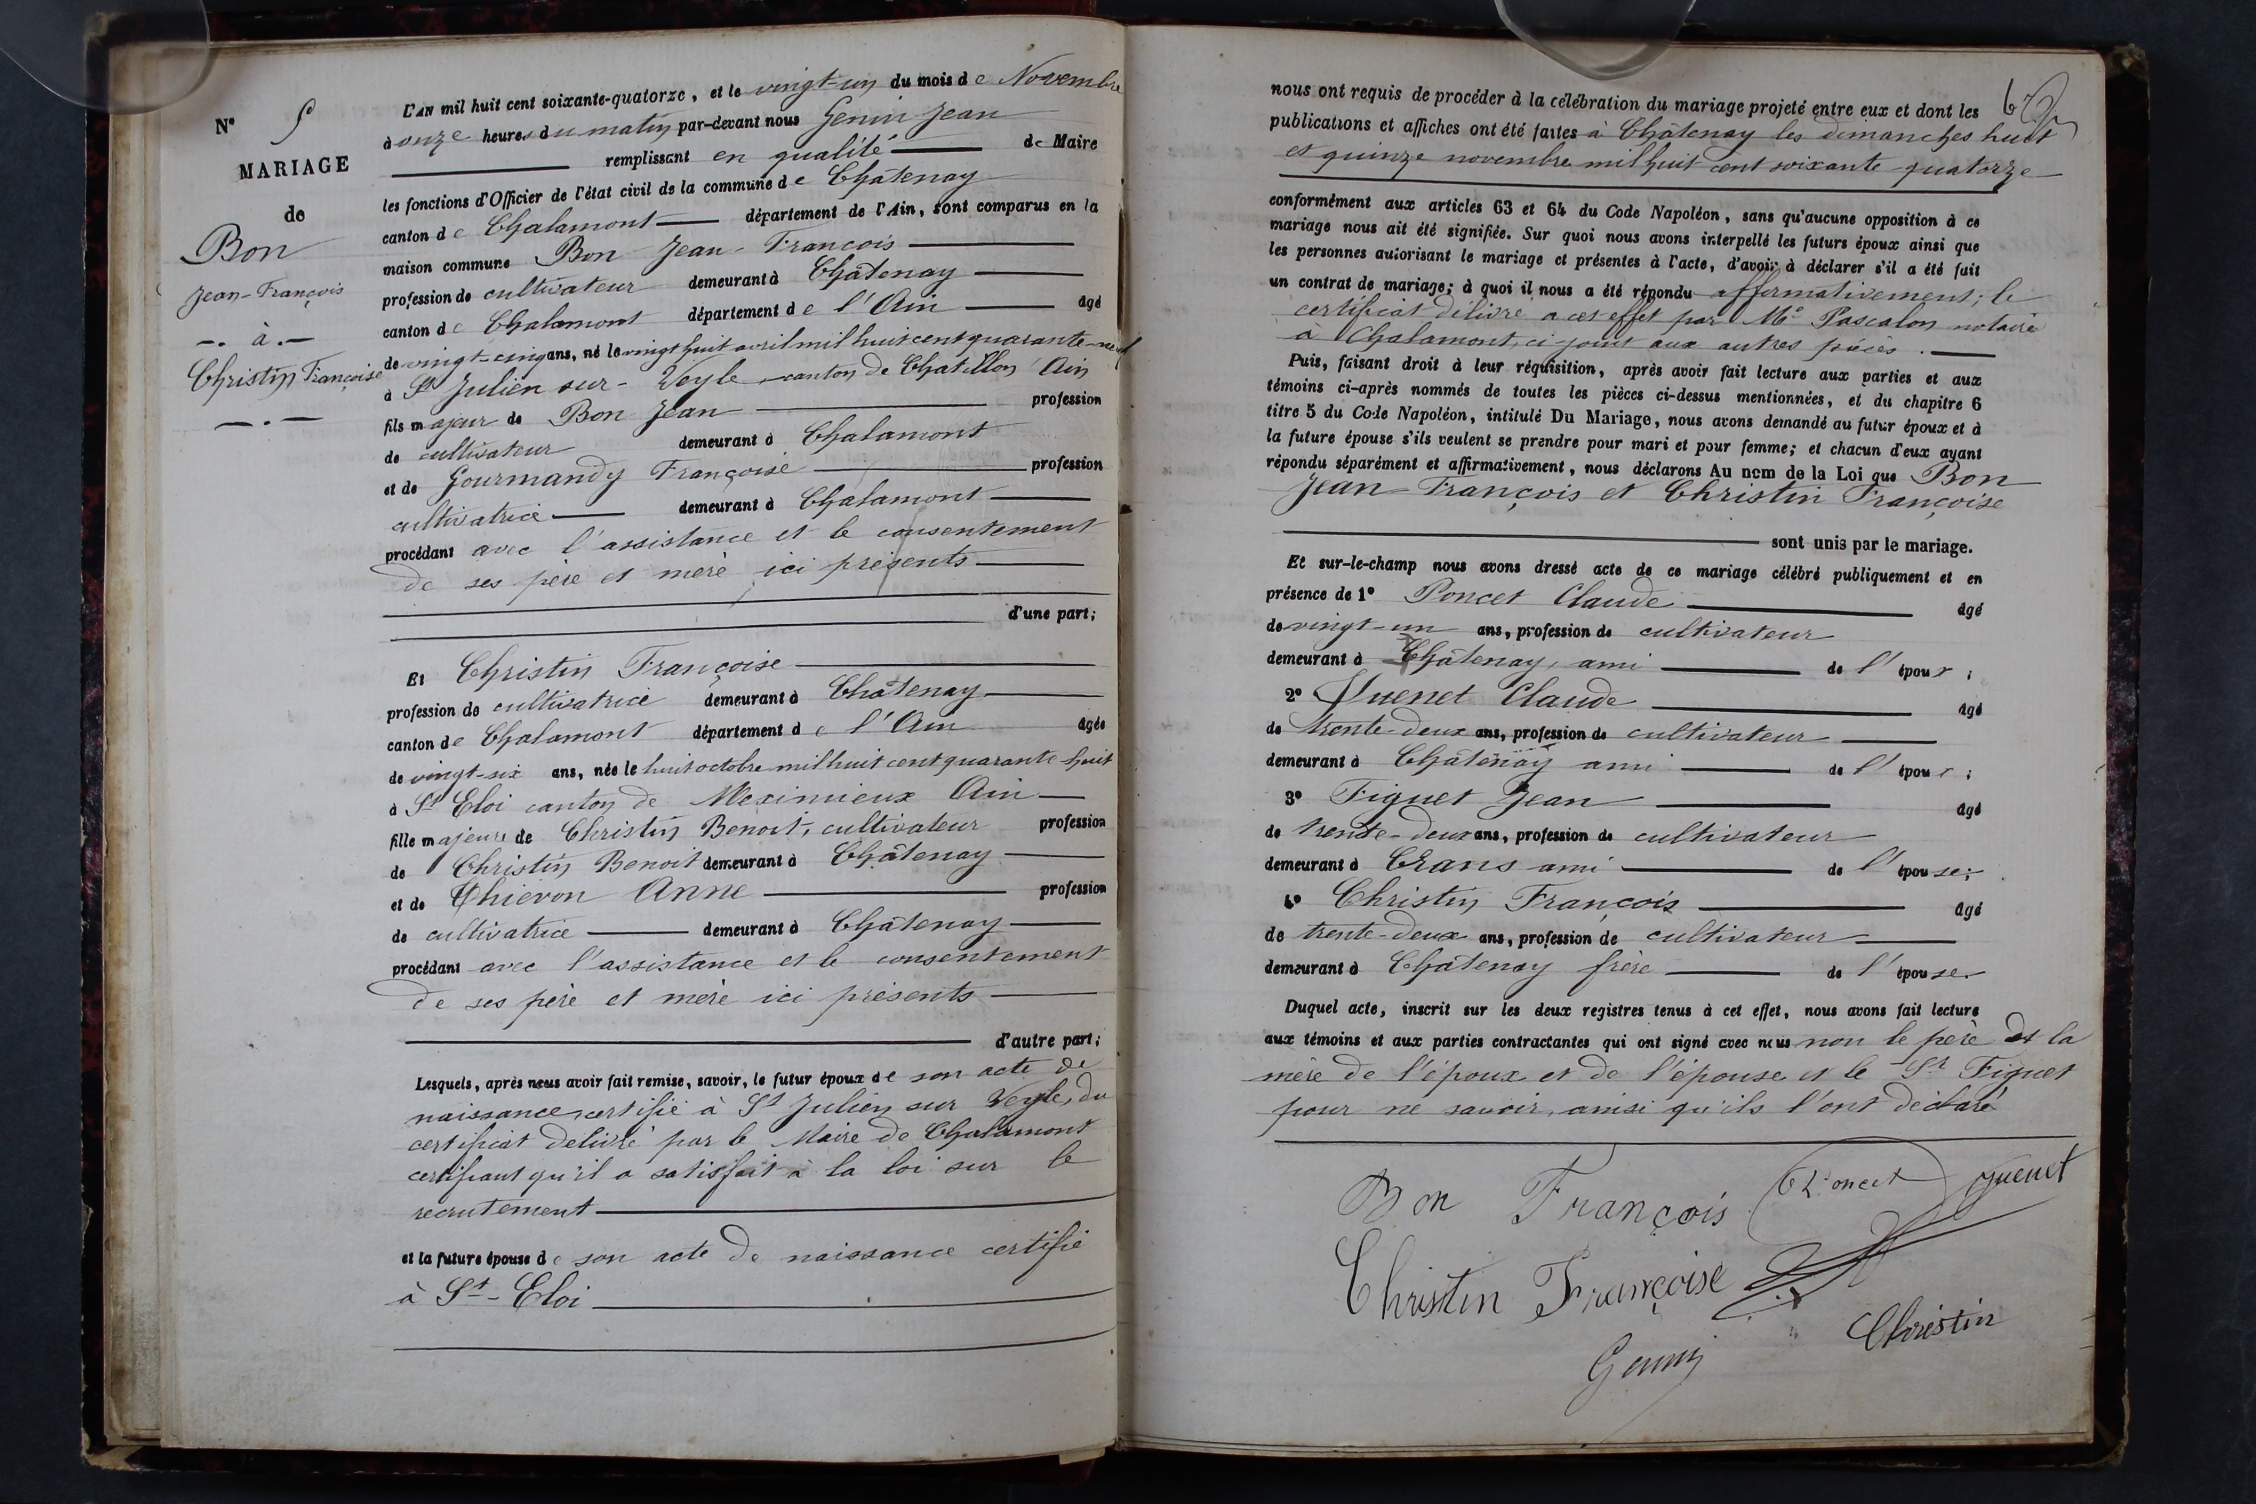 N° 5
MARIAGE
de
Bon
Jean-François
-. à .-
Christin Françoise
L'AN mil huit cent soixante-quatorze, et le vingt-un du mois de Novembre
à onze heures du matin par-devant nous Genin Jean
remplissant en qualité de Maire
les fonctions d'Officier de l'état civil de la commune de Châtenay
canton de Chalamont département de l'Ain, sont comparus en la
maison commune Bon Jean-François
profession de cultivateur demeurant à Châtenay
canton de Chalamont département de l'Ain âgé
de vingt-cinq ans, né le vingt huit avril mil huit cent quarante-neuf
à St Julien sur-Veyle canton de Chatillon Ain
fils majeur de Bon Jean profession
de cultivateur demeurant à Chalamont
et de Gourmandy Françoise profession
cultivatrice demeurant à Chalamont
procédant avec l'assistance et le consentement
de ses père et mère ici présents
d'une part;
Et Christin Françoise
profession de cultivatrice demeurant à Châtenay
canton de Chalamont département de l'Ain âgée
de vingt-six ans, née le huit octobre mil huit cent quarante-huit
à St Eloi canton de Meximieux Ain
fille majeure de Christin Benoit, cultivateur profession
de Christin Benoit demeurant à Châtenay
et de Thiévon Anne profession
de cultivatrice demeurant à Châtenay
procédant avec l'assistance et le consentement
de ses père et mère ici présents
d'autre part;
Lesquels, après nous avoir fait remise, savoir, le futur époux de son acte de
naissance certifié à St Julien sur Veyle, du
certificat délivré par le Maire de Chalamont
certifiant qu'il a satisfait à la loi sur le
recrutement
et la future épouse de son acte de naissance certifié
à St-Eloi
nous ont requis de procéder à la célébration du mariage projeté entre eux et dont les
publications et affiches ont été faites à Châtenay les dimanches huit
et quinze novembre mil huit cent soixante quatorze
conformément aux articles 63 et 64 du Code Napoléon, sans qu'aucune opposition à ce
mariage nous ait été signifiée. Sur quoi nous avons interpellé les futurs époux ainsi que
les personnes autorisant le mariage et présentes à l'acte, d'avoir à déclarer s'il a été fait
un contrat de mariage; à quoi il nous a été répondu affirmativement; le
certificat délivré a cet effet par Me Pascalon notaire
à Chalamont, ci-joint aux autres pièces.
Puis, faisant droit à leur réquisition, après avoir fait lecture aux parties et aux
témoins ci-après nommés de toutes les pièces ci-dessus mentionnées, et du chapitre 6
titre 5 du Code Napoléon, intitulé Du Mariage, nous avons demandé au futur époux et à
la future épouse s'ils veulent se prendre pour mari et pour femme; et chacun d'eux ayant
répondu séparément et affirmativement, nous déclarons Au nom de la Loi que Bon
Jean-François et Christin Françoise
sont unis par le mariage.
Et sur-le-champ nous avons dressé acte de ce mariage célébré publiquement et en
présence de 1° Poncet Claude âgé
de vingt-un ans, profession de cultivateur
demeurant à Châtenay, ami de l'époux;
2° Juenet Claude âgé
de trente-deux ans, profession de cultivateur
demeurant à Châtenay ami de l'époux;
3° Figuet Jean âgé
de trente-deux ans, profession de cultivateur
demeurant à Crans ami de l'épouse;
4° Christin François âgé
de trente-deux ans, profession de cultivateur
demeurant à Châtenay frère de l'épouse
Duquel acte, inscrit sur les deux registres tenus à cet effet, nous avons fait lecture
aux témoins et aux parties contractantes qui ont signé avec nous non le père et la
mère de l'époux et de l'épouse et le Sr Figuet
pour ne savoir, ainsi qu'ils l'ont déclaré
Bon François Poncet Juenet
Christin Françoise
Christin
Genin